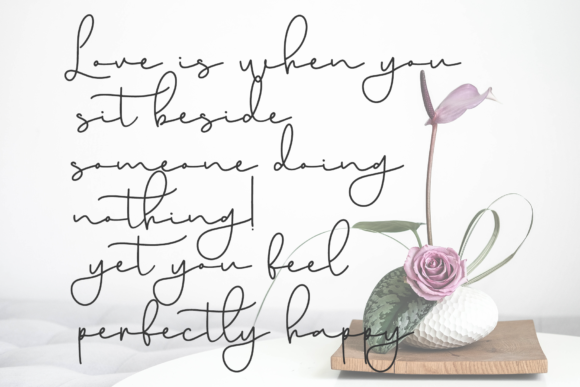 Love is when you
sit beside
someone doing
nothing!
yet you feel
perfectly happy